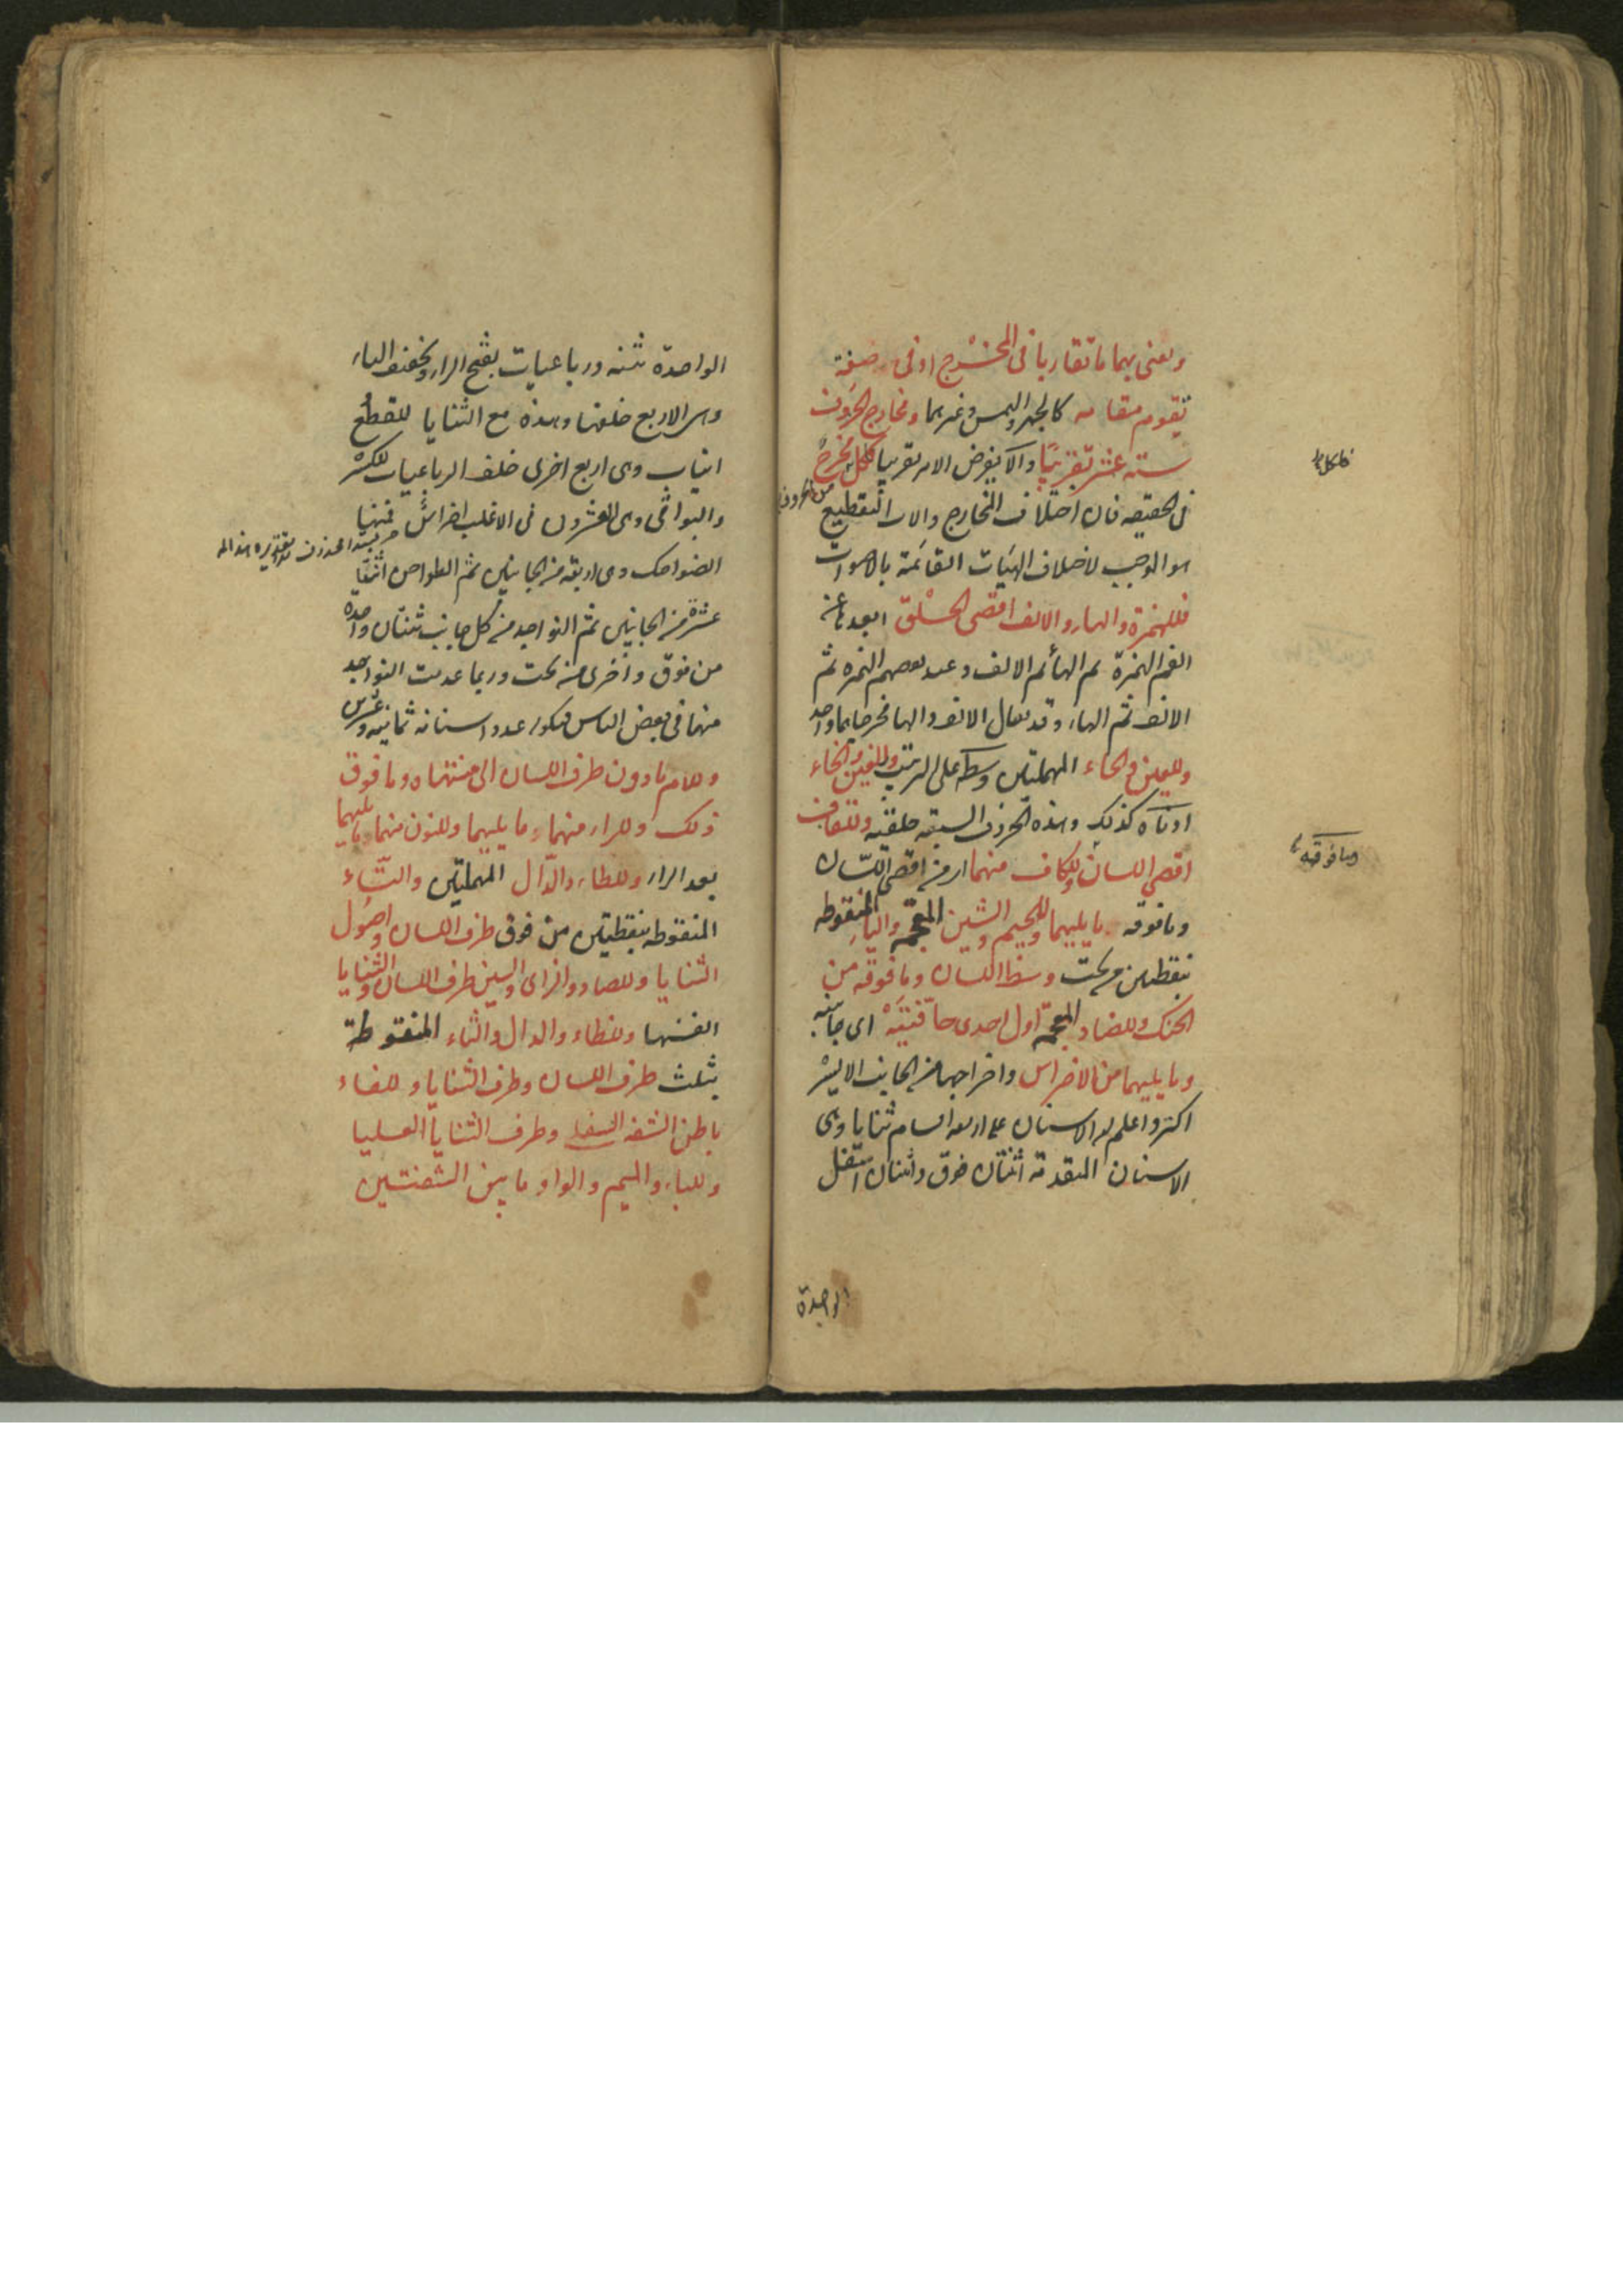 ويعنى بهما ما تقاربا فى المخرج او فى صفة
تقوم مقامه كالجهر والهمس وغيرهما ومخارج الحروف
ستة عشر تقريبا والا يفرض الامر تقريبا فلكل مخرج
من الحروف
فلكل
فى الحقيقه فان اختلاف المخارج والات التقطيع
هو الموجب لاختلاف الهيات القائمة بالاصوات
فللهمزة والهاء والالف اقصى الحلق ابعد ما عن
الفم الهمزة ثم الها ثم الالف وعند بعضهم الهمزه ثم
الالف ثم الهاء وقد يقال الالف والها مخرجا هما واحد
وللعين والحاء المهملتين وسطه على الترتيب وللغين والخاء
ادناه كذلك وهذه الحروف السبعة حلقية وللقاف
اقصى اللسان وللكاف منهما اى من اقصى اللسان
وما فوقه
وما فوقه ما يليهما وللجيم والشين المعجمه والياء المنقوطه
بنقطتين من تحت وسط اللسان وما فوقه من
الحنك وللضاد المعجمة اول احدى حافتيه اى جانبيه
وما يليهما من الاضراس واخراجها من الجانب الايسر
اكثر واعلم ان الاسنان على اربعه اقسام ثنايا وهى
الاسنان المتقدمة اثنتان فوق واثنتان اسفل
الواحدة
الواحدة ثنيه ورباعيات بفتح الراء وتخفيف الياء
وهى الاربع خلفها وهذه مع الثنايا للقطع
انياب وهى اربع اخرى خلف الرباعيات للكسر
والبواقى وهى العشرون فى الاغلب اضراس فمنها
الضواحك وهى اربعة من الجانبين ثم الطواحن اثنتا
عشرة من الجانبين ثم النواجد من كل جانب ثنتان واحدة
من فوق واخرى من تحت وربما عدمت النواجد
منها فى بعض الناس فيكون عدد اسنانه ثمانية وعشرين
وللام ما دون طرف اللسان الى منتهاه وما فوق
ذلك وللراء منهما ما يليهما وللنون منهما ما يليهما
بعد الراء وللطاء والدال المهملتين والتاء
المنقوطه بنقطتين من فوق طرف اللسان واصول
الثنايا وللصاد والزاى والسين طرف اللسان والثنايا
انفسها وللظاء والذال والثاء المنقوطة
بثلث طرف اللسان وطرف الثنايا وللفاء
باطن الشفه السفلى وطرف الثنايا العليا
وللباء والميم والواو ما بين الشفتين